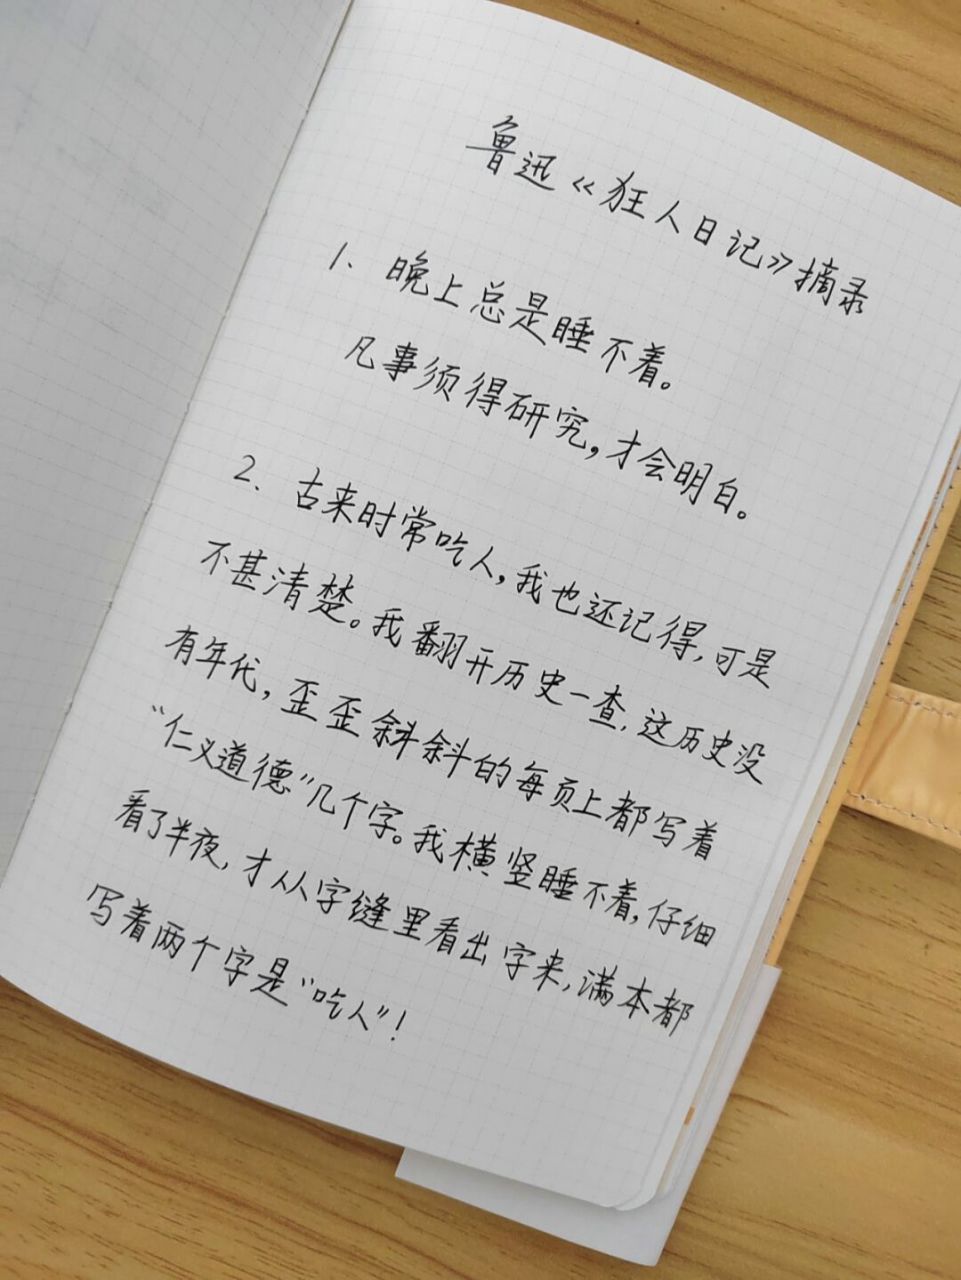 鲁迅《狂人日记》摘录
1、晚上总是睡不着。
凡事须得研究，才会明白。
2、古来时常吃人，我也还记得，可是
不甚清楚。我翻开历史一查，这历史没
有年代，歪歪斜斜的每页上都写着
“仁义道德”几个字。我横竖睡不着，仔细
看了半夜，才从字缝里看出字来，满本都
写着两个字是“吃人”！